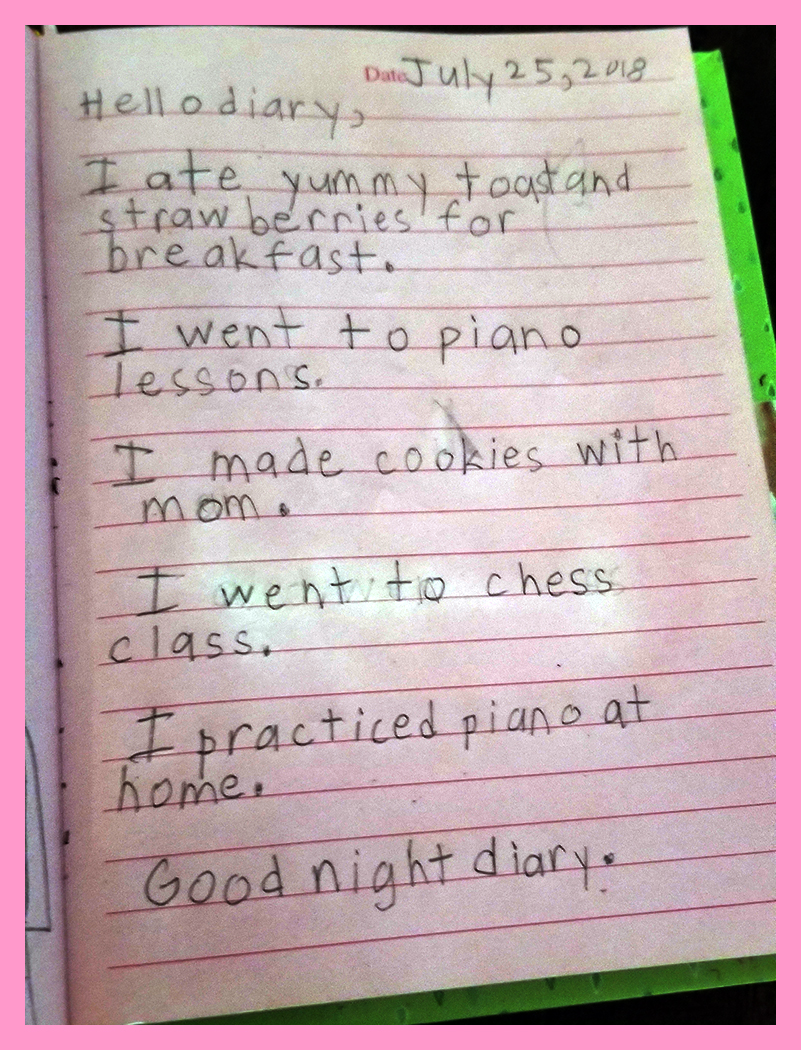 Date July 25, 2018
Hello diary,
I ate yummy toast and
strawberries for
breakfast.
I went to piano
lessons.
I made cookies with
mom.
I went to chess
class.
I practiced piano at
home.
Good night diary.